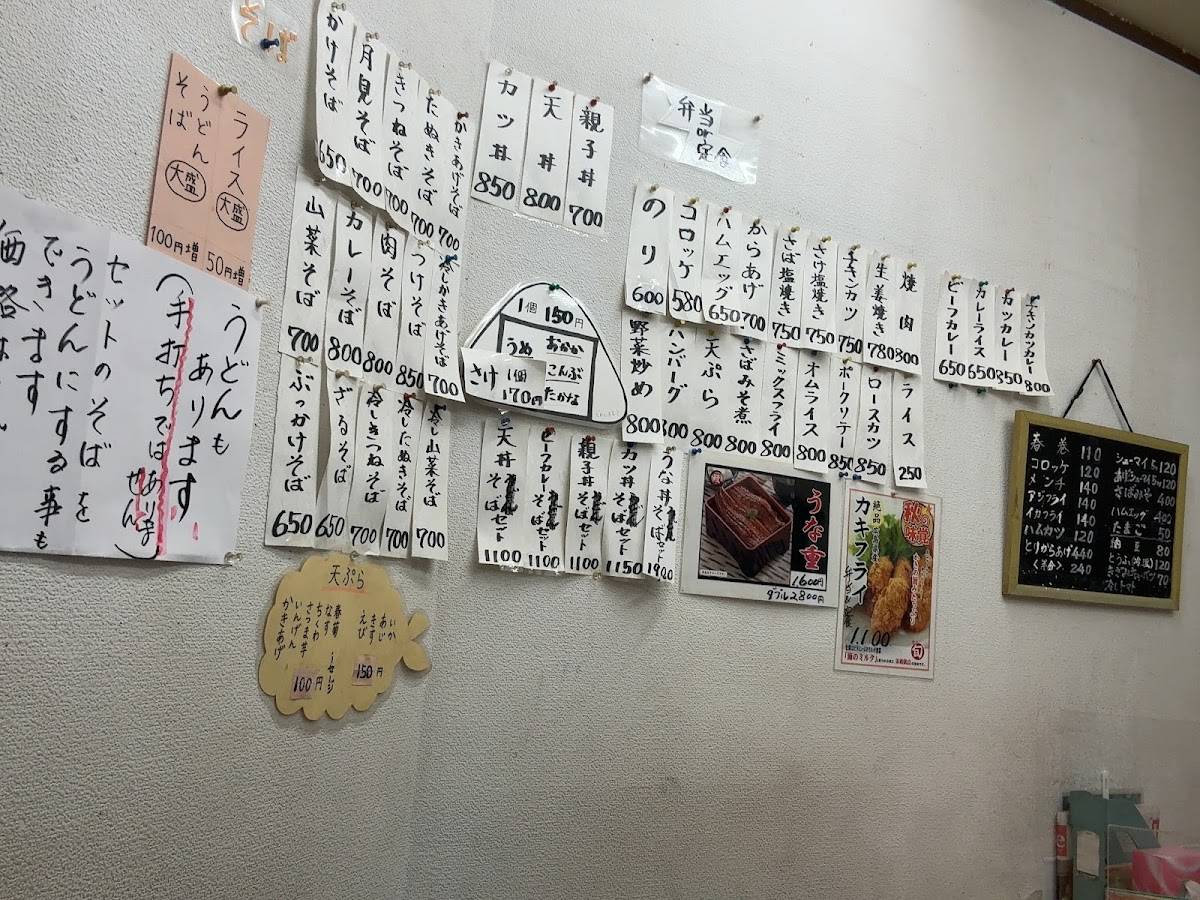 そば
ライス 大盛 50円増
うどん
そば 大盛 100円増
うどんも
あります
(手打ちではありません)
セットのそばを
うどんにする事も
できます
かけそば 650
月見そば 700
きつねそば 700
たぬきそば 700
かきあげそば 700
山菜そば 700
カレーそば 800
肉そば 800
つけそば 850
冷しかきあげそば 700
ぶっかけそば 650
ざるそば 650
冷しきつねそば 700
冷したぬきそば 700
冷し山菜そば 700
カツ丼 850
天丼 800
親子丼 700
弁当or定食
のり 600
コロッケ 580
ハムエッグ 650
からあげ 700
さば塩焼き 750
さけ塩焼き 750
チキンカツ 750
生姜焼き 780
焼肉 800
野菜炒め 800
ハンバーグ 800
天ぷら 800
さばみそ煮 800
ミックスフライ 800
オムライス 800
ポークソテー 850
ロースカツ 850
ライス 250
ビーフカレー 650
カレーライス 650
カツカレー 850
チキンカツカレー 800
1個150円
うめ おかか
こんぶ
たかな
さけ 1個 170円
天丼そばセット 1100
ビーフカレーそばセット 1100
親子丼そばセット 1100
カツ丼そばセット 1150
うな丼そばセット
うな重
1600円
ダブル2800円
秋の味覚
絶品
カキフライ
1,100
「海のミルク」
旬
春巻 110
コロッケ 120
メンチ 140
アジフライ 140
イカフライ 140
ハムカツ 120
とりからあげ 440
〈半分〉 240
シューマイ5ヶ 120
あげシューマイ5ヶ 120
さばみそ 400
ハムエッグ 400
たまご 50
納豆 80
とうふ(冷温) 120
70
天ぷら
いか
あじ
きす
えび
150円
春菊
なす
ちくわ
さつま芋
いんげん
かきあげ
100円